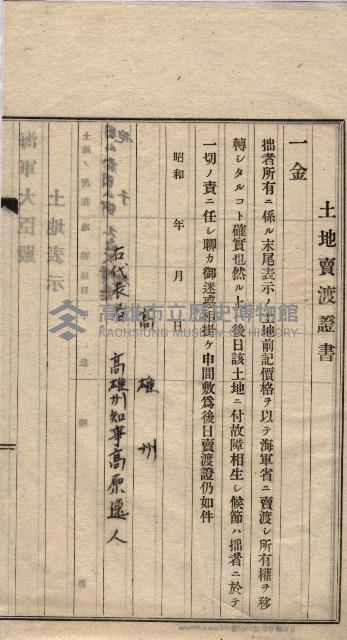 土地賣渡證書
一金
拙者所有ニ係ル末尾表示ノ土地前記價格ヲ以テ海軍省ニ賣渡シ所有權ヲ移
轉シタルコト確實也然ル上ハ後日該土地ニ付故障相生シ候節ハ拙者ニ於テ
一切ノ責ニ任シ聊カ御迷惑相掛ケ申間敷爲後日賣渡證仍如件
昭和 年 月 日
高雄州
右代表者 高雄州知事高原逸人
土地表示
海軍大臣殿
高雄市立歷史博物館
KAOHSIUNG MUSEUM OF HISTORY